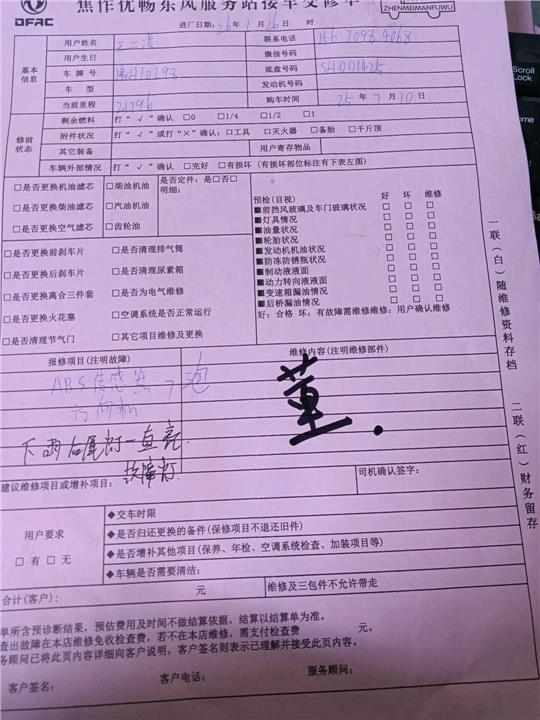 焦作优畅东风服务站接车交修单
DFAC
ZHENMEIMANFUWU
进厂日期：26年1月26日 时
基本信息
用户姓名 联系电话
用户生日 微信号码
车牌号 底盘号码 SH001425
车型 发动机号码
当前里程 21796 购车时间 25年7月10日
修前状态
剩余燃料 打“√”确认 □0 □1/4 □1/2 □1
附件状况 打“√”或打“×”确认：□工具 □灭火器 □备胎 □千斤顶
其它装备 用户寄存物品
车辆外部情况 打“√”确认 □完好 □有损坏（有损坏部位标注有下表左图）
□是否更换机油滤芯 □柴油机油 是否定件：是□否□
□是否更换柴油滤芯 □汽油机油 明细：
□是否更换空气滤芯 □齿轮油
预检(目视) 好 坏 维修
■前挡风玻璃及车门玻璃状况 □ □ □
■灯具情况 □ □ □
■油量状况 □ □ □
■轮胎状况 □ □ □
■发动机机油状况 □ □ □
■防冻防锈瓶状况 □ □ □
■制动液液面 □ □ □
■动力转向液液面 □ □ □
■变速箱漏油情况 □ □ □
■后桥漏油情况 □ □ □
好：合格 坏：有故障需维修维修：用户确认维修
□是否更换前刹车片 □是否清理排气筒
□是否更换后刹车片 □是否清理尿素箱
□是否更换离合三件套 □是否为电气维修
□是否更换火花塞 □空调系统是否正常运行
□是否清理节气门 □其它项目维修及更换
报修项目(注明故障) 维修内容(注明维修部件)
ABS传感器
董.
下雨右尾灯一直亮
故障灯
建议维修项目或增补项目： 司机确认签字：
用户要求
□有 □无
◆交车时限
◆是否归还更换的备件(保修项目不退还旧件)
◆是否增补其他项目(保养、年检、空调系统检查、加装项目等)
◆车辆是否需要清洁：
合计(客户)： 元 维修及三包件不允许带走
单所含预诊断结果，预估费用及时间不做结算依据，结算以结算单为准。
查出故障在本店维修免收检查费，若不在本店维修，需支付检查费 元。
务顾问已将此页内容详细向客户说明，客户签名则表示已理解并接受此页内容。
客户签名： 客户电话： 服务顾问：
一联（白）随维修资料存档
二联（红）财务留存
Scroll
Lock
Home